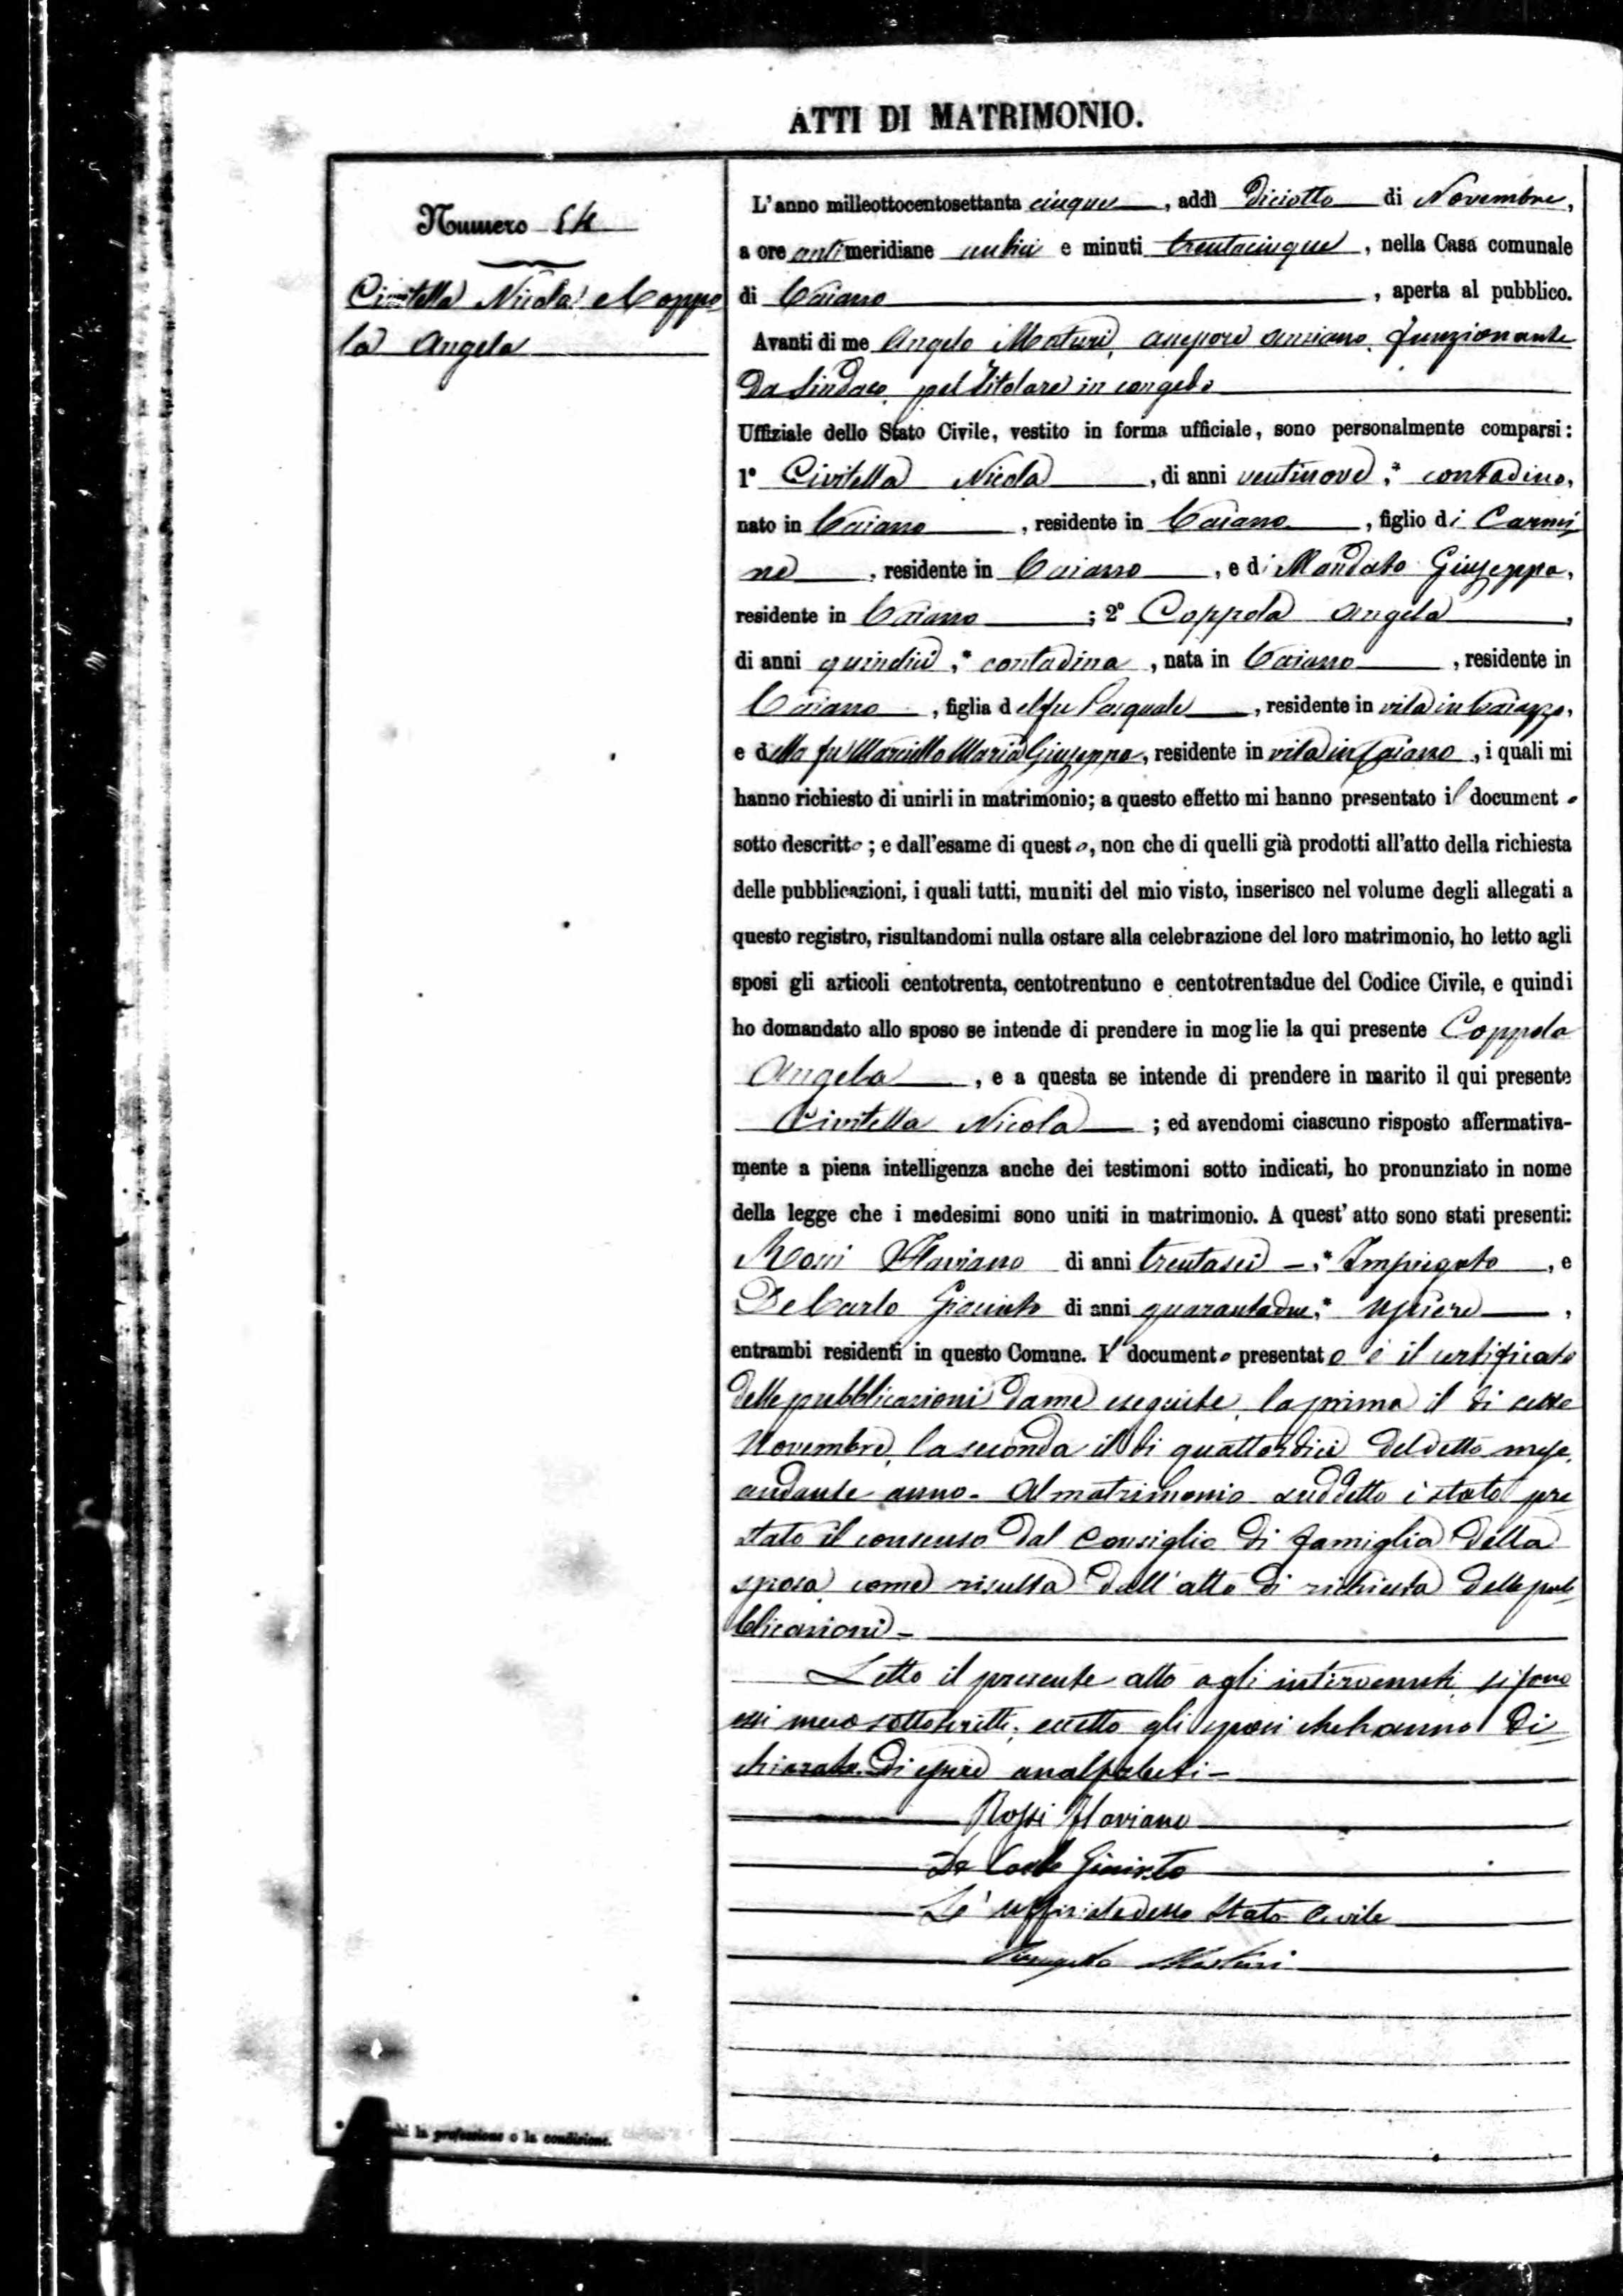 ATTI DI MATRIMONIO.
Numero 54
Civitella Nicola e Coppo
la Angela
L'anno milleottocentosettanta cinque, addì diciotto di Novembre,
a ore antimeridiane undici e minuti trentacinque, nella Casa comunale
di Caiazzo, aperta al pubblico.
Avanti di me Angelo Maturi, assessore anziano funzionante
da Sindaco pel titolare in congedo
Uffiziale dello Stato Civile, vestito in forma ufficiale, sono personalmente comparsi:
1º Civitella Nicola, di anni ventinove,* contadino,
nato in Caiazzo, residente in Caiazzo, figlio di Carmi
ne, residente in Caiazzo, e di Mandato Giuseppa,
residente in Caiazzo; 2º Coppola Angela,
di anni quindici,* contadina, nata in Caiazzo, residente in
Caiazzo, figlia del fu Pasquale, residente in vita in Caiazzo,
e della fu Marciello Maria Giuseppa, residente in vita in Caiazzo, i quali mi
hanno richiesto di unirli in matrimonio; a questo effetto mi hanno presentato il documento
sotto descritto; e dall'esame di questo, non che di quelli già prodotti all'atto della richiesta
delle pubblicazioni, i quali tutti, muniti del mio visto, inserisco nel volume degli allegati a
questo registro, risultandomi nulla ostare alla celebrazione del loro matrimonio, ho letto agli
sposi gli articoli centotrenta, centotrentuno e centotrentadue del Codice Civile, e quindi
ho domandato allo sposo se intende di prendere in moglie la qui presente Coppola
Angela, e a questa se intende di prendere in marito il qui presente
Civitella Nicola; ed avendomi ciascuno risposto affermativa-
mente a piena intelligenza anche dei testimoni sotto indicati, ho pronunziato in nome
della legge che i medesimi sono uniti in matrimonio. A quest' atto sono stati presenti:
Rossi Flaviano di anni trentasei,* Impiegato, e
De Carlo Giacinto di anni quarantadue,* Usciere,
entrambi residenti in questo Comune. Il documento presentato è il certificato
delle pubblicazioni da me eseguite, la prima il dì sette
Novembre, la seconda il dì quattordici del detto mese,
andante anno. Al matrimonio suddetto è stato pre
stato il consenso dal Consiglio di famiglia della
sposa come risulta dall'atto di richiesta delle pub
blicazioni
Letto il presente atto agli intervenuti, si sono
essi meco sottoscritti, eccetto gli sposi che hanno di
chiarato di essere analfabeti
Rossi Flaviano
De Carlo Giacinto
L' uffiziale dello Stato Civile
Angelo Maturi
la professione o la condizione.